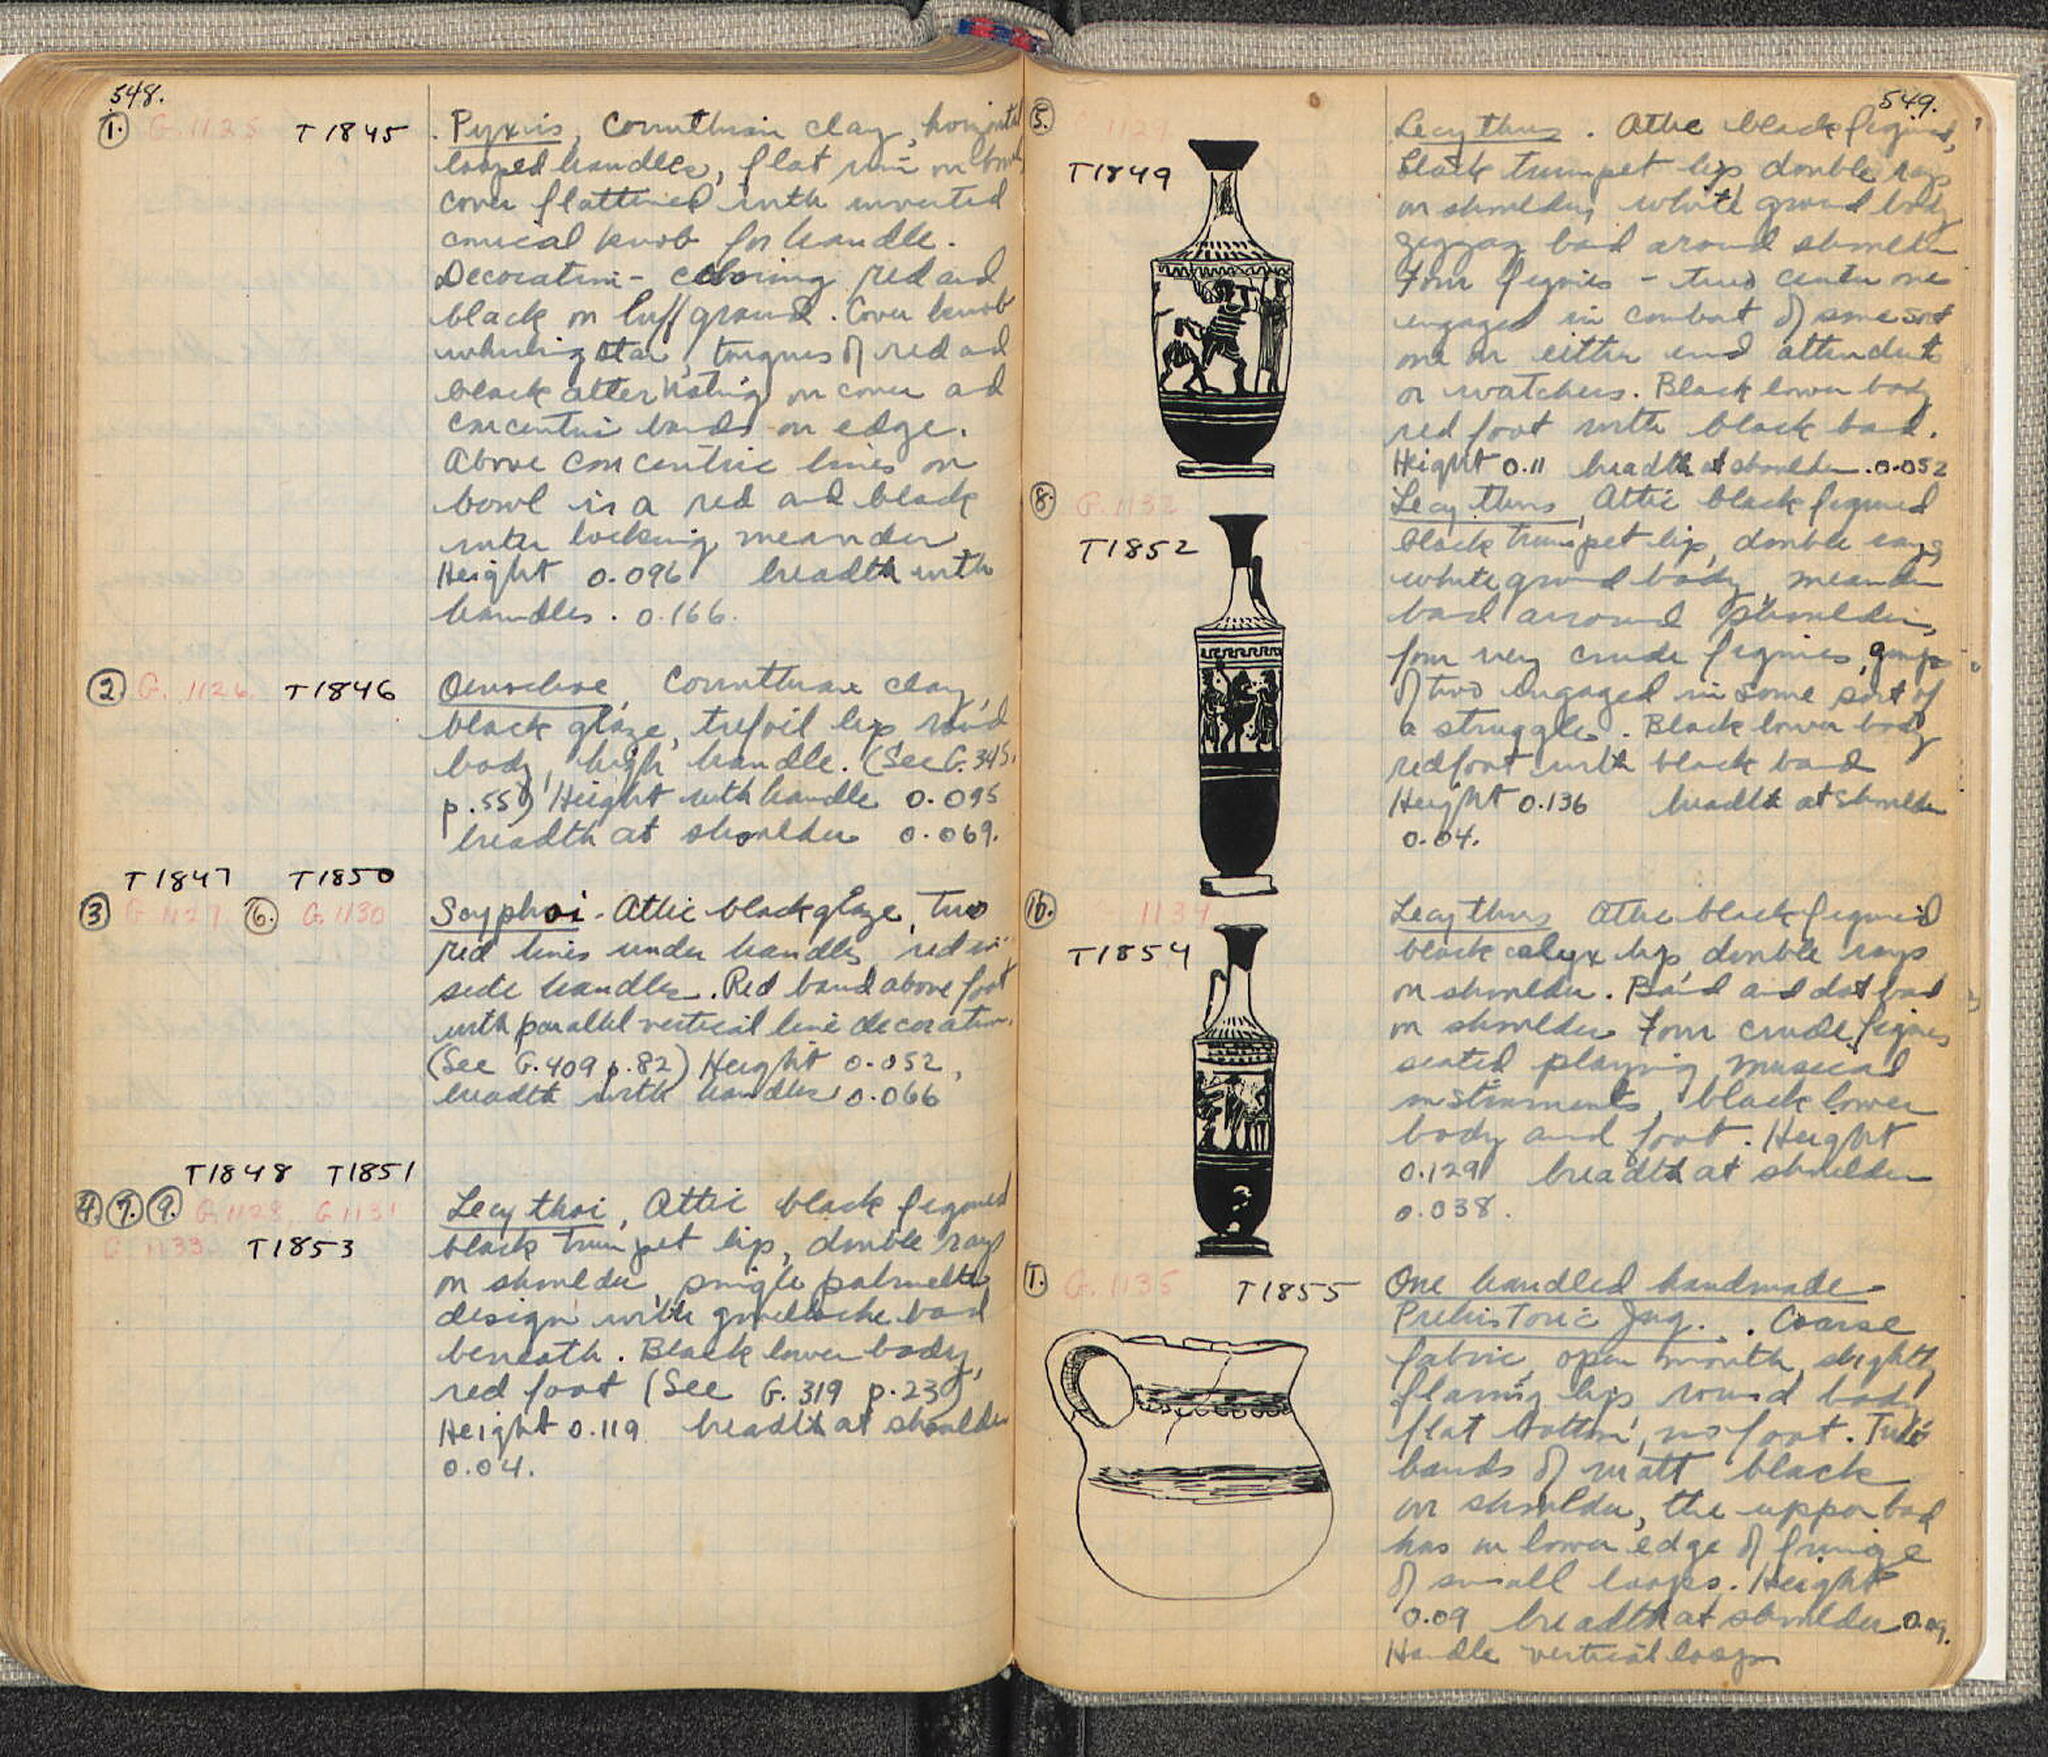 548.
1. G. 1125 T1845 . Pyxis, Corinthian clay, horizontal
looped handles, flat rim on bowl,
cover flattened with inverted
conical knob for handle.
Decoration - coloring red and
black on buff ground. Cover knob
whirling star, tongues of red and
black alternating on cover and
concentric bands on edge.
Above concentric lines on
bowl is a red and black
inter locking meander
Height 0.096 breadth with
handles. 0.166.
2. G. 1126. T1846 Oenochoe, Corinthian clay,
black glaze, trefoil lip, round
body, high handle. (See G. 345.
p. 55) Height with handle 0.095
breadth at shoulder 0.069.
T1847 T1850
3 G 1127. 6. G. 1130 Scyphoi - Attic black glaze, two
red lines under handles, red in-
side handles. Red band above foot
with parallel vertical line decoration.
(See G. 409 p. 82) Height 0.052,
breadth with handles 0.066
T1848 T1851
4. 7. 9. G. 1128, G 1131 Lecythoi, Attic black figured
G. 1133. T1853 black trumpet lip, double rays
on shoulder, single palmette
design with guilloche band
beneath. Black lower body,
red foot (See G. 319 p. 23)
Height 0.119 breadth at shoulder
0.04.
549.
5. G 1129 Lecythus. Attic black figured,
T1849 black trumpet lip double rays
on shoulder, white ground body
zigzag band around shoulder
Four figures - two center one
engaged in combat of some sort
one on either end attendants
or watchers. Black lower body
red foot with black band.
Height 0.11 breadth at shoulder .0.052
8. G. 1132 Lecythus, Attic black figured
T1852 black trumpet lip, double rays
white ground body, meander
band around shoulder,
four very crude figures, groups
of two engaged in some sort of
a struggle. Black lower body
red foot with black band
Height 0.136 breadth at shoulder
0.04.
10. G. 1134 Lecythus Attic black figured
T1854 black calyx lip, double rays
on shoulder. Band and dot band
on shoulder Four crude figures
seated playing musical
instruments, black lower
body and foot. Height
0.129 breadth at shoulder
0.038.
1. G. 1135 T1855 One handled handmade
Prehistoric Jug. . Coarse
fabric, open mouth, slightly
flaring lip, round body
flat bottom, no foot. Two
bands of matt black
on shoulder, the upper band
has on lower edge of fringe
of small loops. Height
0.09 breadth at shoulder 0.09.
Handle vertical loop